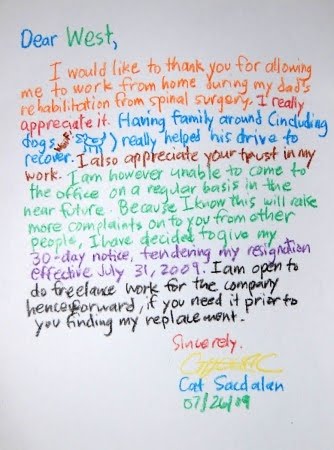 Dear West,
I would like to thank you for allowing
me to work from home during my dad's
rehabilitation from spinal surgery. I really
appreciate it. Having family around (including
dogs) really helped his drive to
recover. I also appreciate your trust in my
work. I am however unable to come to
the office on a regular basis in the
near future. Because I know this will raise
more complaints on to you from other
people, I have decided to give my
30-day notice, tendering my resignation
effective July 31, 2009. I am open to
do freelance work for the company
henceforward, if you need it prior to
you finding my replacement.
Sincerely,
Cat Sacdalan
07/26/09